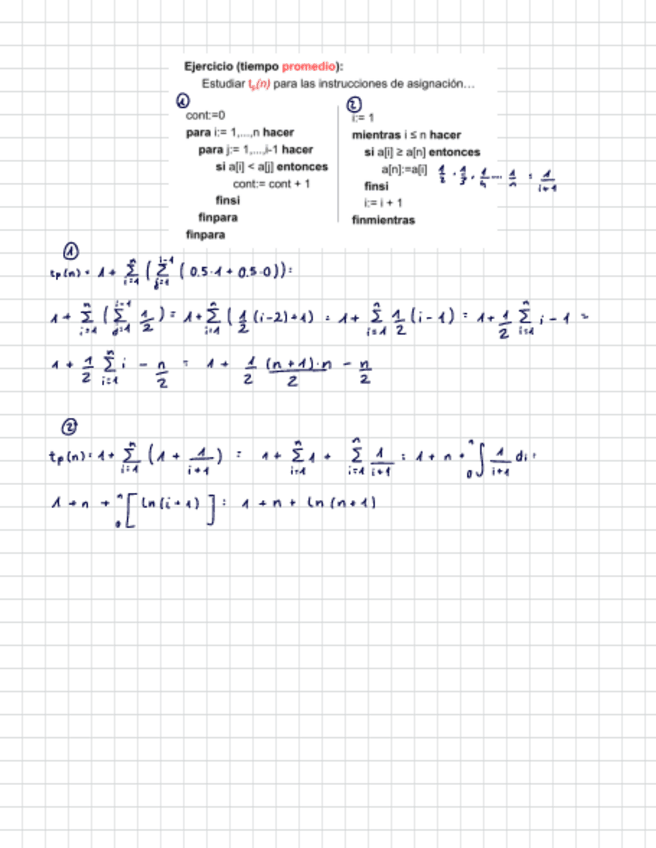 Ejercicio (tiempo promedio):
Estudiar tₚ(n) para las instrucciones de asignación...
①
cont:=0
para i:= 1,...,n hacer
para j:= 1,...,i-1 hacer
si a[i] < a[j] entonces
cont:= cont + 1
finsi
finpara
finpara
②
i:= 1
mientras i ≤ n hacer
si a[i] ≥ a[n] entonces
a[n]:=a[i] 1/2 · 1/3 · 1/4 ... 1/n = 1/(i+1)
finsi
i:= i + 1
finmientras
①
tp(n) = 1 + Σ_{i=1}^{n} ( Σ_{j=1}^{i-1} ( 0.5·1 + 0.5·0 )) =
1 + Σ_{i=1}^{n} ( Σ_{j=1}^{i-1} 1/2 ) = 1 + Σ_{i=1}^{n} ( 1/2 (i-2)+1) = 1 + Σ_{i=1}^{n} 1/2 (i-1) = 1 + 1/2 Σ_{i=1}^{n} i - 1 =
1 + 1/2 Σ_{i=1}^{n} i - n/2 = 1 + 1/2 (n+1)·n/2 - n/2
②
tp(n) = 1 + Σ_{i=1}^{n} ( 1 + 1/(i+1) ) = 1 + Σ_{i=1}^{n} 1 + Σ_{i=1}^{n} 1/(i+1) = 1 + n + ∫_{0}^{n} 1/(i+1) di =
1 + n + _{0}^{n} [ ln(i+1) ] = 1 + n + ln(n+1)